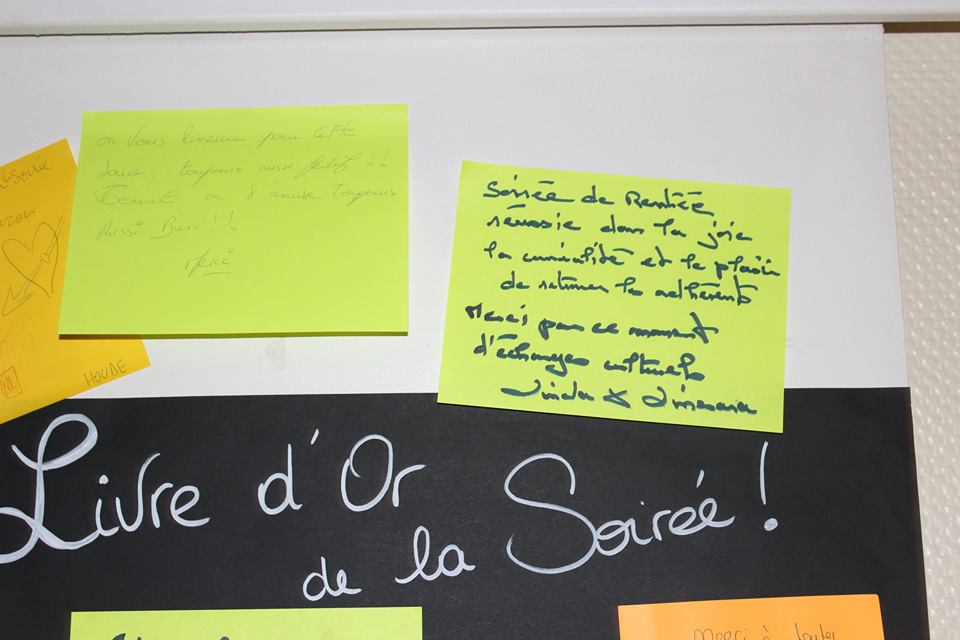 on vous remercie pour cette
soirée, toujours aussi festif !!
Génial on s'amuse toujours
Aussi Bien !!
Merci
HOUDE
Soirée de Rentrée
réussie dans la joie
la convivialité et le plaisir
de retrouver les adhérents
Merci pour ce moment
d'échanges culturels
Linda &
Livre d'Or
de la Soirée !
Merci à toute